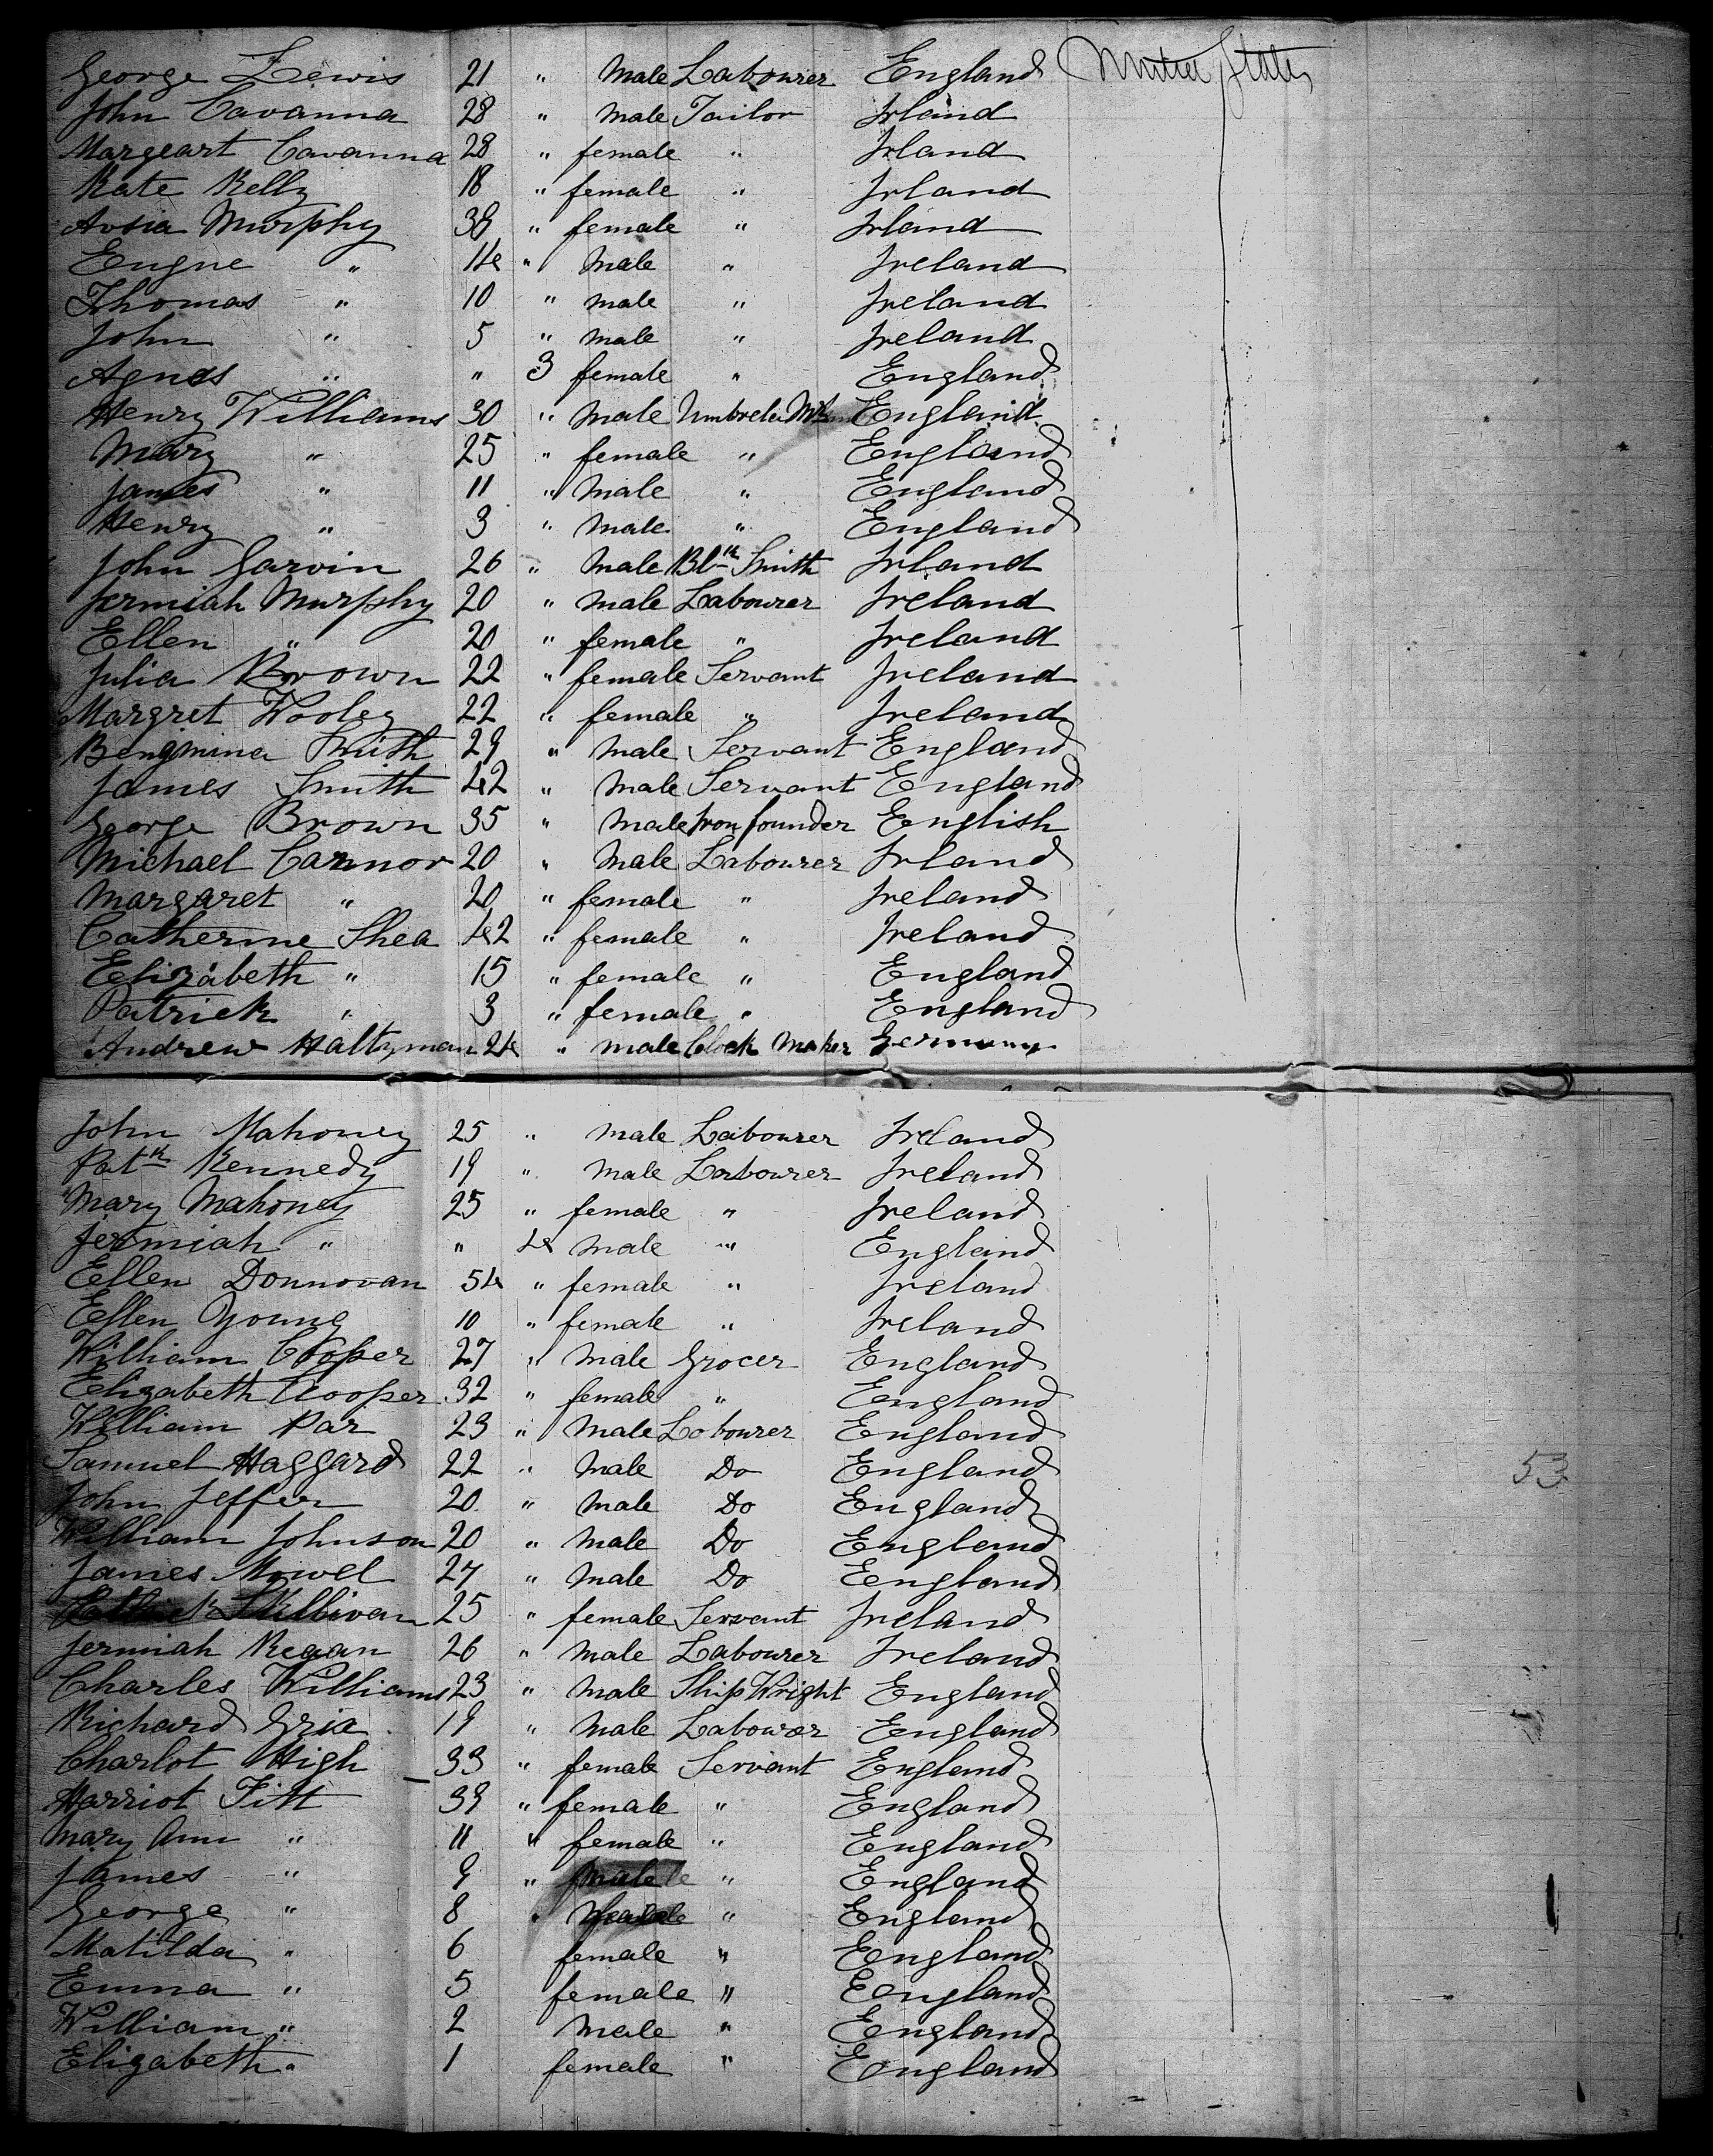 George Lewis 21 " Male Labourer England United States
John Cavanna 28 " Male Tailor Irland
Margeart Cavanna 28 " female " Irland
Kate Kelly 18 " female " Irland
Murphy 38 " female " Irland
Eugne " 14 " Male " Ireland
Thomas " 10 " male " Ireland
John " 5 " male " Ireland
Agnes " " 3 female " England
Henry Williams 30 " Male Umbrela England
Mary " 25 " female " England
James " 11 " Male " England
Henry " 3 " Male " England
John Garvin 26 " Male Blk Smith Irland
Jermiah Murphy 20 " Male Labourer Ireland
Ellen " 20 " female " Ireland
Julia Brown 22 " female Servant Ireland
Margret Wooley 22 " female " Ireland
Bengmina Smith 29 " Male Servant England
James Smith 42 " Male Servant England
George Brown 35 " Male Iron founder English
Michael Cannor 20 " Male Labourer Irland
Margaret " 20 " female " Ireland
Catherine Shea 42 " female " Ireland
Elizabeth " 15 " female " England
Patrick " 3 " female " England
Andrew Haltzman 24 " male Clock Maker Germany
John Mahoney 25 " Male Labourer Ireland
Patk Kennedy 19 " Male Labourer Ireland
Mary Mahoney 25 " female " Ireland
Jermiah " " 4 Male " England
Ellen Donnovan 54 " female " Ireland
Ellen Young 10 " female " Ireland
William Cooper 27 " Male Grocer England
Elizabeth Cooper 32 " female " England
William Par 23 " Male Labourer England
Samuel Haggard 22 " Male Do England 53
John Jeffer 20 " Male Do England
William Johnson 20 " Male Do England
James Mowel 27 " Male Do England
25 " female Servant Ireland
Jermiah Regan 26 " Male Labourer Ireland
Charles Williams 23 " Male Ship Wright England
Richard Gria 19 " Male Labourer England
Charlot High 33 " female Servant England
Harriot Fitt 39 " female " England
Mary Ann " 11 " female " England
James " 9 " male " England
George " 8 " " England
Matilda " 6 female " England
Emma " 5 female " England
William " 2 Male " England
Elizabeth " 1 female " England